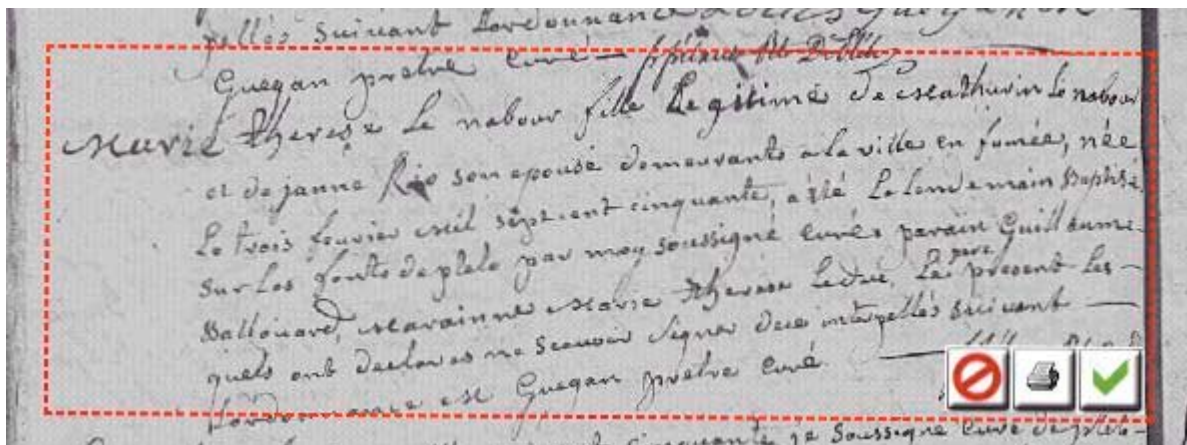 pellés suivant Lordonnance
Guegan prètre curé
Marie therese Le nabour fille Legitime de Mathurin Le nabour
et de janne Rio son epouse demeurants a la ville en fumée, née
Le trois fevrier mil sept cent cinquante, a été Le Lendemain Baptisé
sur Les fonts de plele par moy soussigné curé, parain Guillaume
Ballouard, Marainne Marie therese Leduc, Le pere present Les
quels ont declarés ne scavoir signer de ce interpellés suivant
Lordonnance est Guegan prètre curé.
cinquante je soussigné curé de